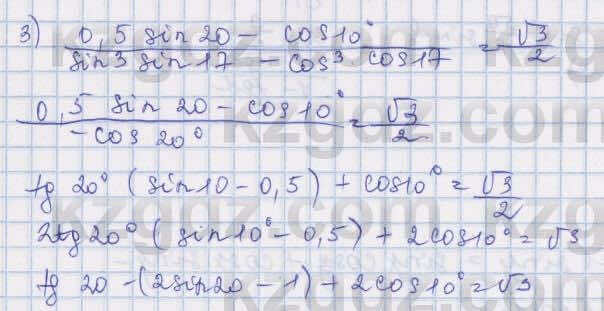 3) 0,5 sin 20 - cos10° / sin3 sin17 - cos3 cos17 = √3/2
0,5 sin 20 - cos10° / -cos 20° = √3/2
tg 20° (sin10 - 0,5) + cos10° = √3/2
2tg20° (sin10° - 0,5) + 2cos10° = √3
tg 20 - (2sin20 - 1) + 2cos10° = √3